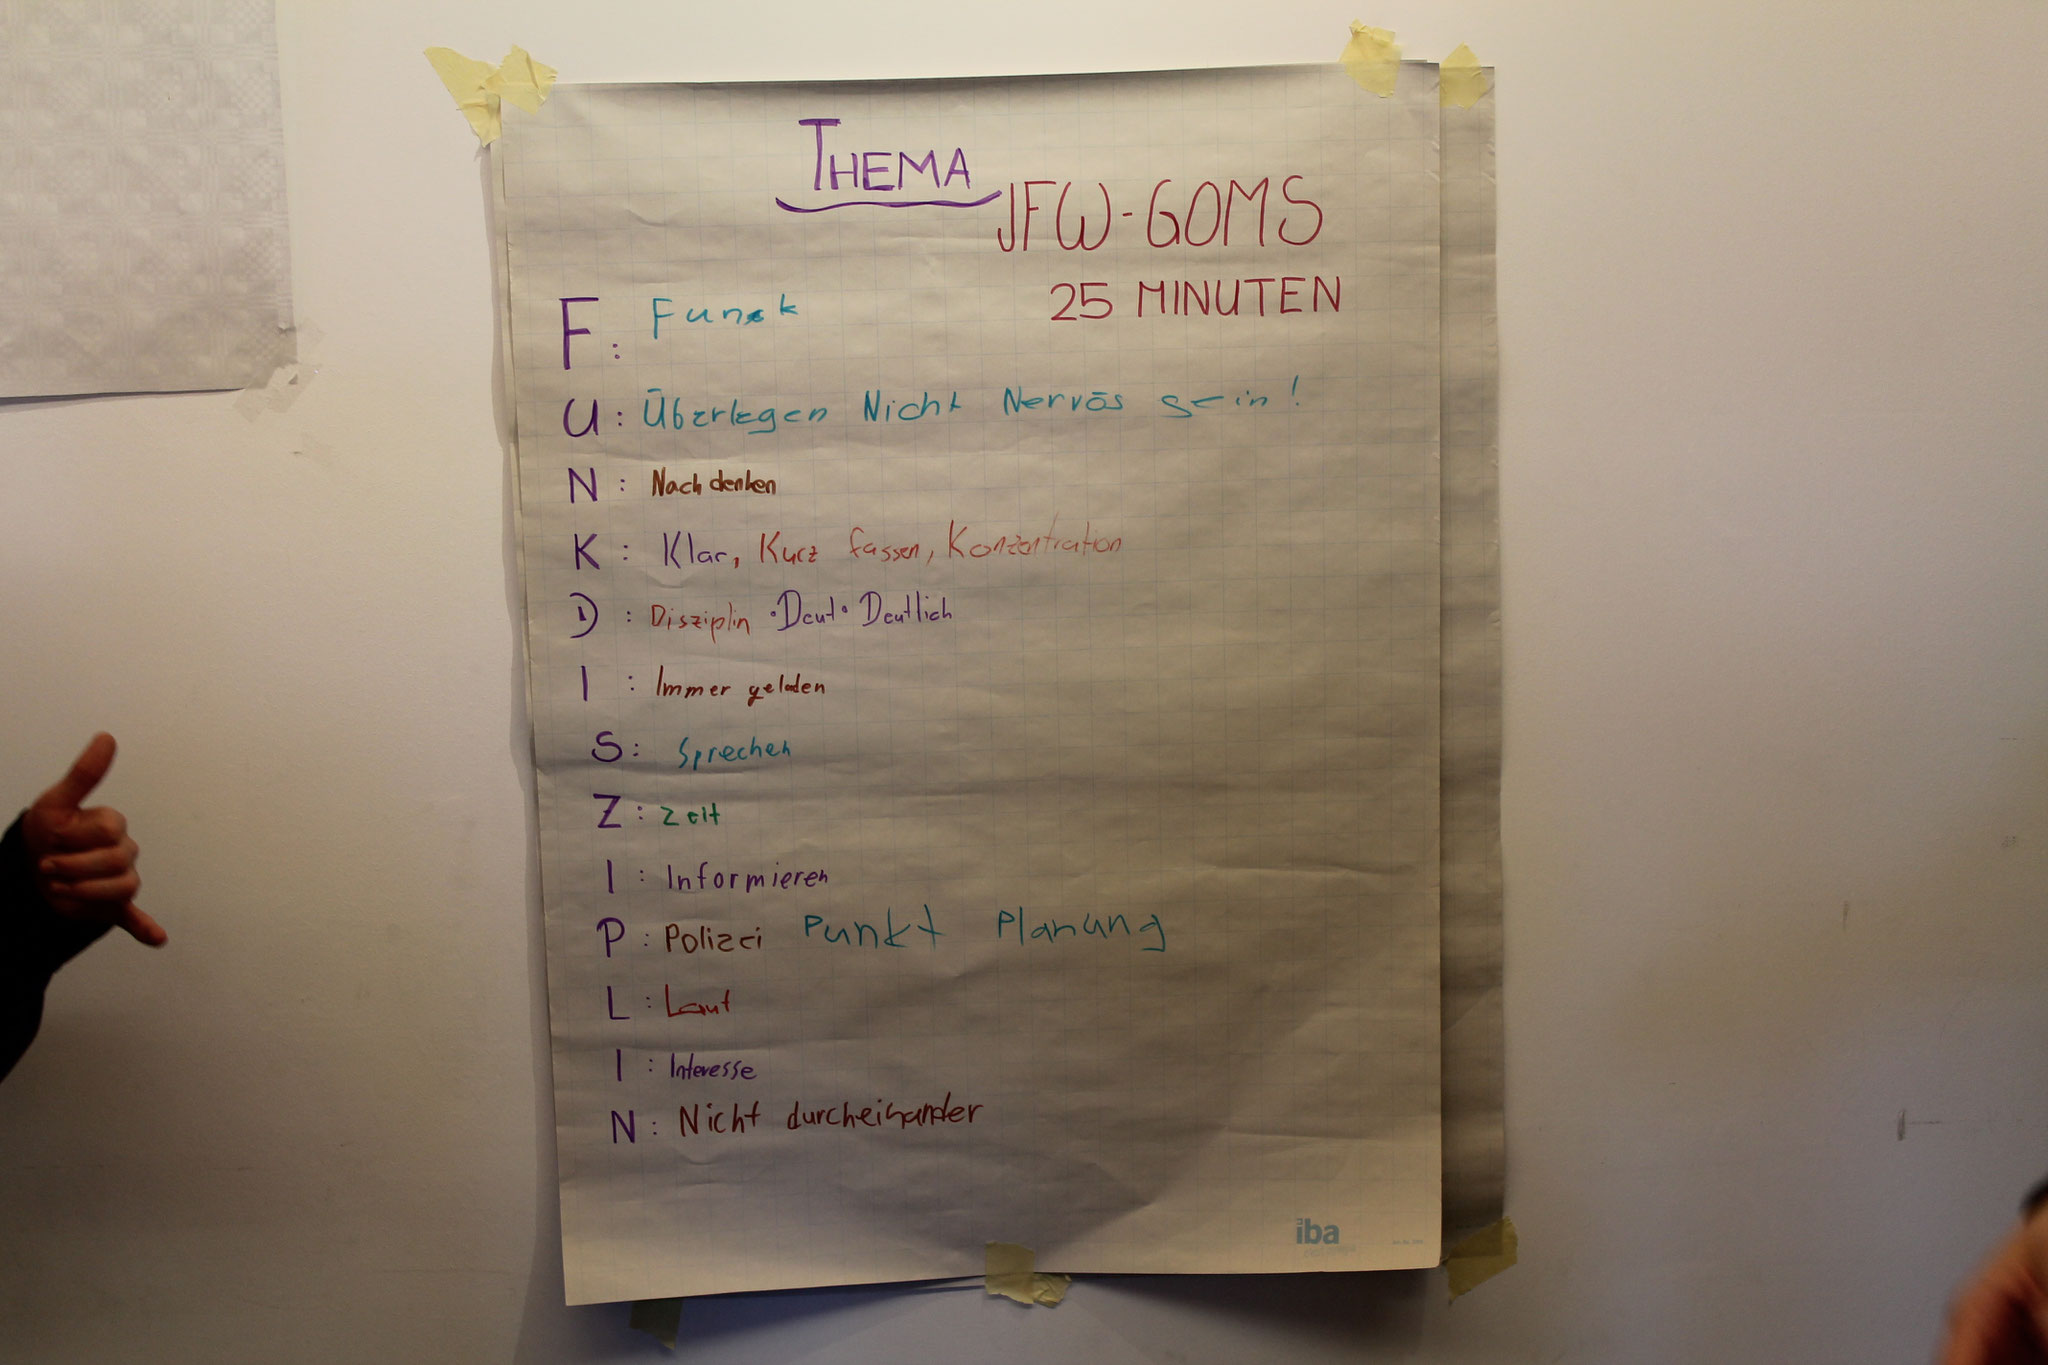 THEMA
JFW-GOMS
25 MINUTEN
F: Funk
U: Überlegen Nicht Nervös sein!
N: Nachdenken
K: Klar, Kurz fassen, Konzentration
D: Disziplin • Deut • Deutlich
I: Immer geladen
S: Sprechen
Z: Zeit
I: Informieren
P: Polizei Punkt Planung
L: Laut
I: Interesse
N: Nicht durcheinander
iba